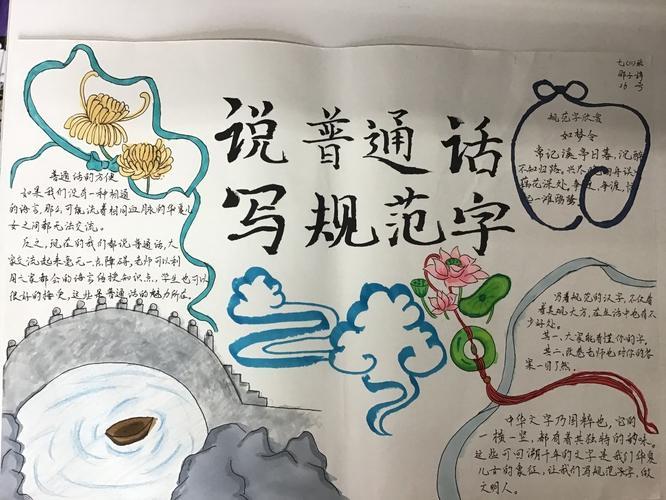 说普通话
写规范字
16号
普通话的方便
如果我们没有一种相通
的语言,那么可能流着相同血脉的华夏儿
女之间都无法交流。
反之,现在的我们都说普通话,大
家交流起来毫无一点障碍,老师可以利
用大家都会的语言传授知识点,学生也可以
很好的接受,这些是普通话的魅力所在。
规范字欣赏
如梦令
常记溪亭日暮,沉醉
不知归路。兴尽
藕花深处。争渡,
一滩鸥鹭
写着规范的汉字,不仅看
着美观大方,在生活中也有不
少好处。
其一、大家能看懂你的字。
其二、改卷老师也对你的答
案一目了然。
中华文字乃国粹也,它的
一横一竖,都有着其独特的韵味。
这些可回溯千年的文字是我们华夏
儿女的象征,让我们写规范汉字,做
文明人。